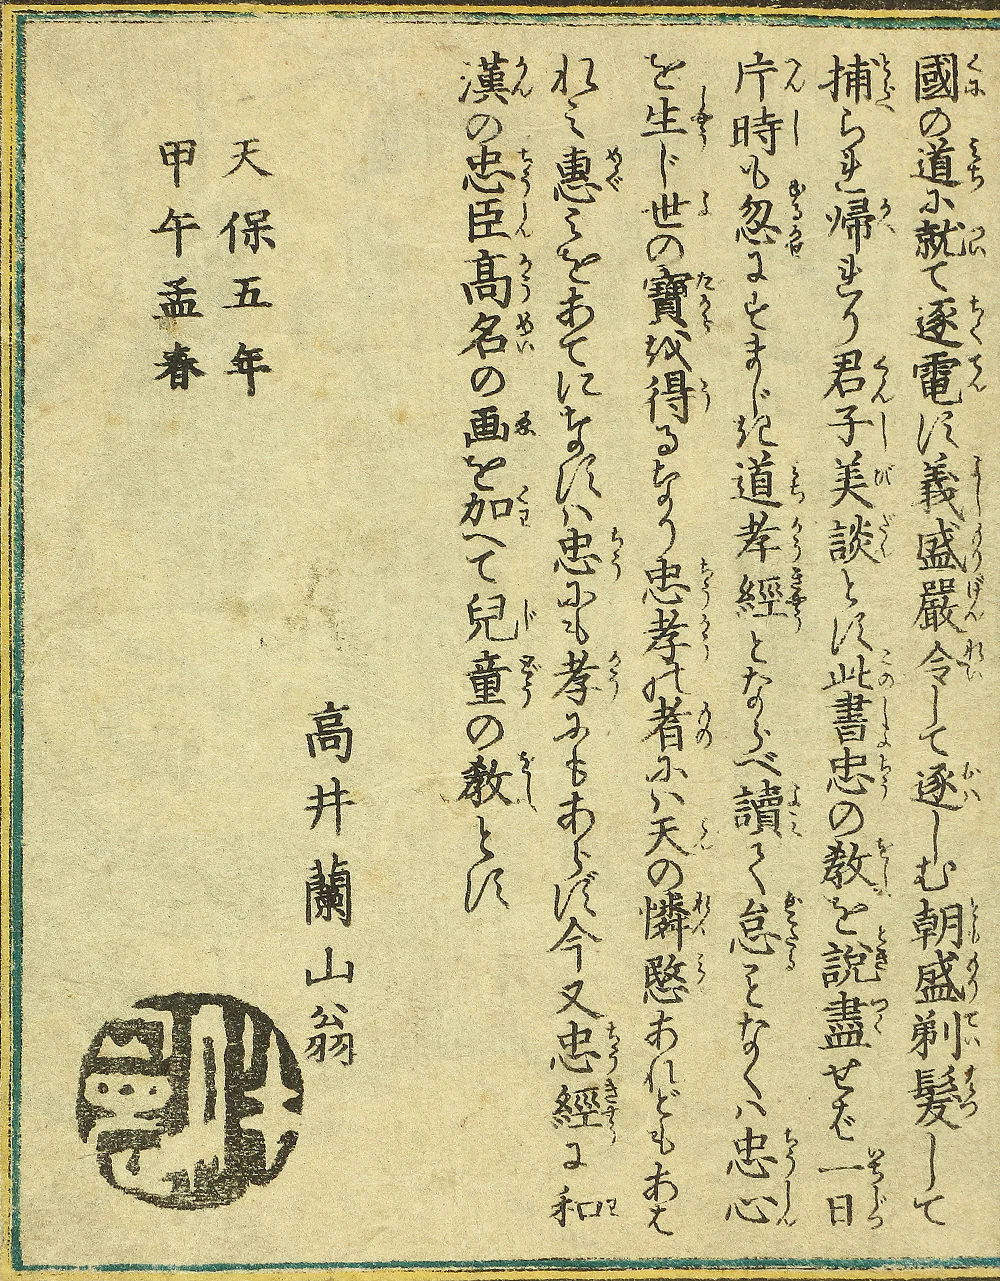 國の道に就て逐電す義盛嚴令して逐しむ朝盛剃髪して
捕られ帰れり君子美談とす此書忠の教を説盡せば一日
片時も忽にすまじき道孝經とならべ讀て怠ことなくハ忠心
を生じ世の寶を得るなり忠孝の者にハ天の憐愍あれどもあは
れみ惠みをあてになすハ忠にも孝にもあらず今又忠經に和
漢の忠臣高名の画を加へて兒童の教とす
天保五年
甲午孟春
高井蘭山翁